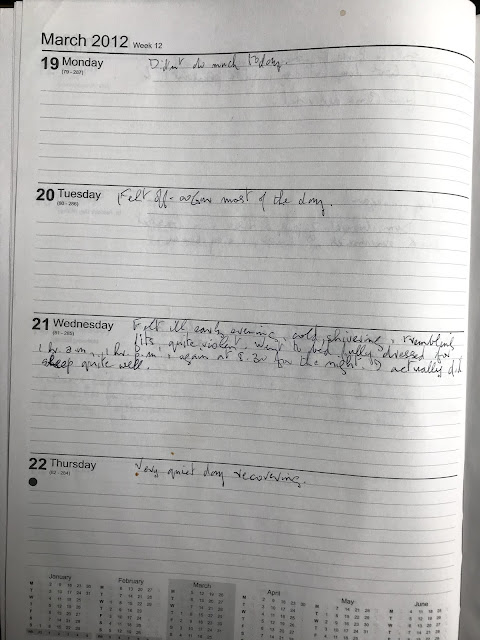 March 2012 Week 12
19 Monday
(79 - 287)
Didn't do much today.
20 Tuesday
(80 - 286)
Felt off-colour most of the day.
21 Wednesday
(81 - 285)
Felt ill early evening, cold, shivering, trembling
fits, quite violent. Went to bed fully dressed for
1 hr. a.m., 1 hr. p.m., again at 8.30 for the night & actually did
sleep quite well.
22 Thursday
(82 - 284)
Very quiet day recovering.
January
February
March
April
May
June